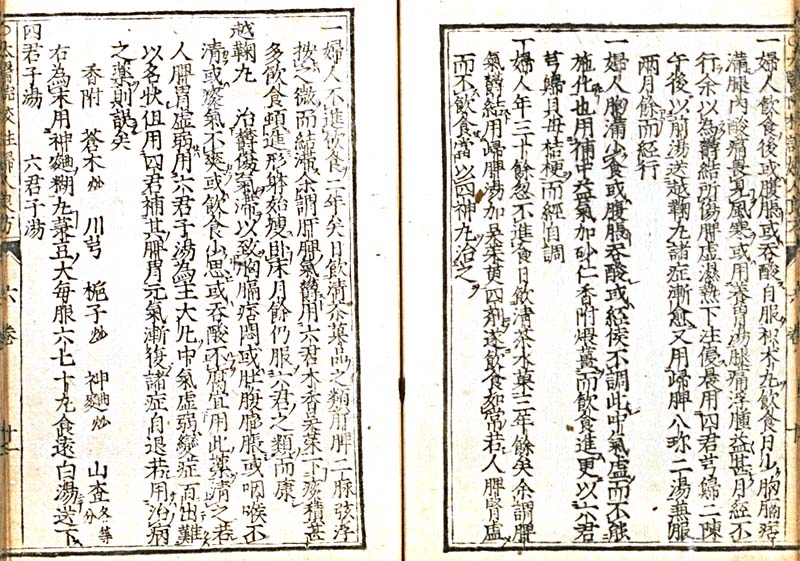 一婦人飲食後或腹脹或吞酸自服枳朮丸飲食日少胸膈痞
滿腿內酸痛畏見風寒或用養胃湯腿痛浮腫益甚月經不
行余以為鬱結所傷脾虛濕熱下注侵晨用四君芎歸二陳
午後以前湯送越鞠丸諸症漸愈又用歸脾八珍二湯兼服
兩月餘而經行
一婦人胸滿少食或腹脹吞酸或經候不調此中氣虛而不能
施化也用補中益氣加砂仁香附煨薑而飲食進更以六君
芎歸貝母桔梗而經自調
一婦人年三十餘忽不進食日飲清茶水菓三年餘矣余謂脾
氣鬱結用歸脾湯加吳茱萸四劑遂飲食如常若人脾腎虛
而不飲食當以四神丸治之
一婦人不進飲食二年矣日飲清茶菓品之類肝脾二脉弦浮
按之微而結滯余謂肝脾氣鬱用六君木香吳茱下痰積甚
多飲食頓進形體始瘦卧床月餘仍服六君之類而康
越鞠丸 治鬱傷氣滯以致胸膈痞悶或肚腹膨脹或咽喉不
清或痰氣不爽或飲食少思或吞酸不腐宜用此藥清之若
人脾胃虛弱用六君子湯為主大凡中氣虛弱變症百出難
以名狀但用四君補其脾胃元氣漸復諸症自退若用治病
之藥則誤矣
香附 蒼朮炒 川芎 梔子炒 神麯炒 山查各等分
右為末用神麯糊丸菉豆大每服六七十丸食遠白湯送下
四君子湯 六君子湯
六卷